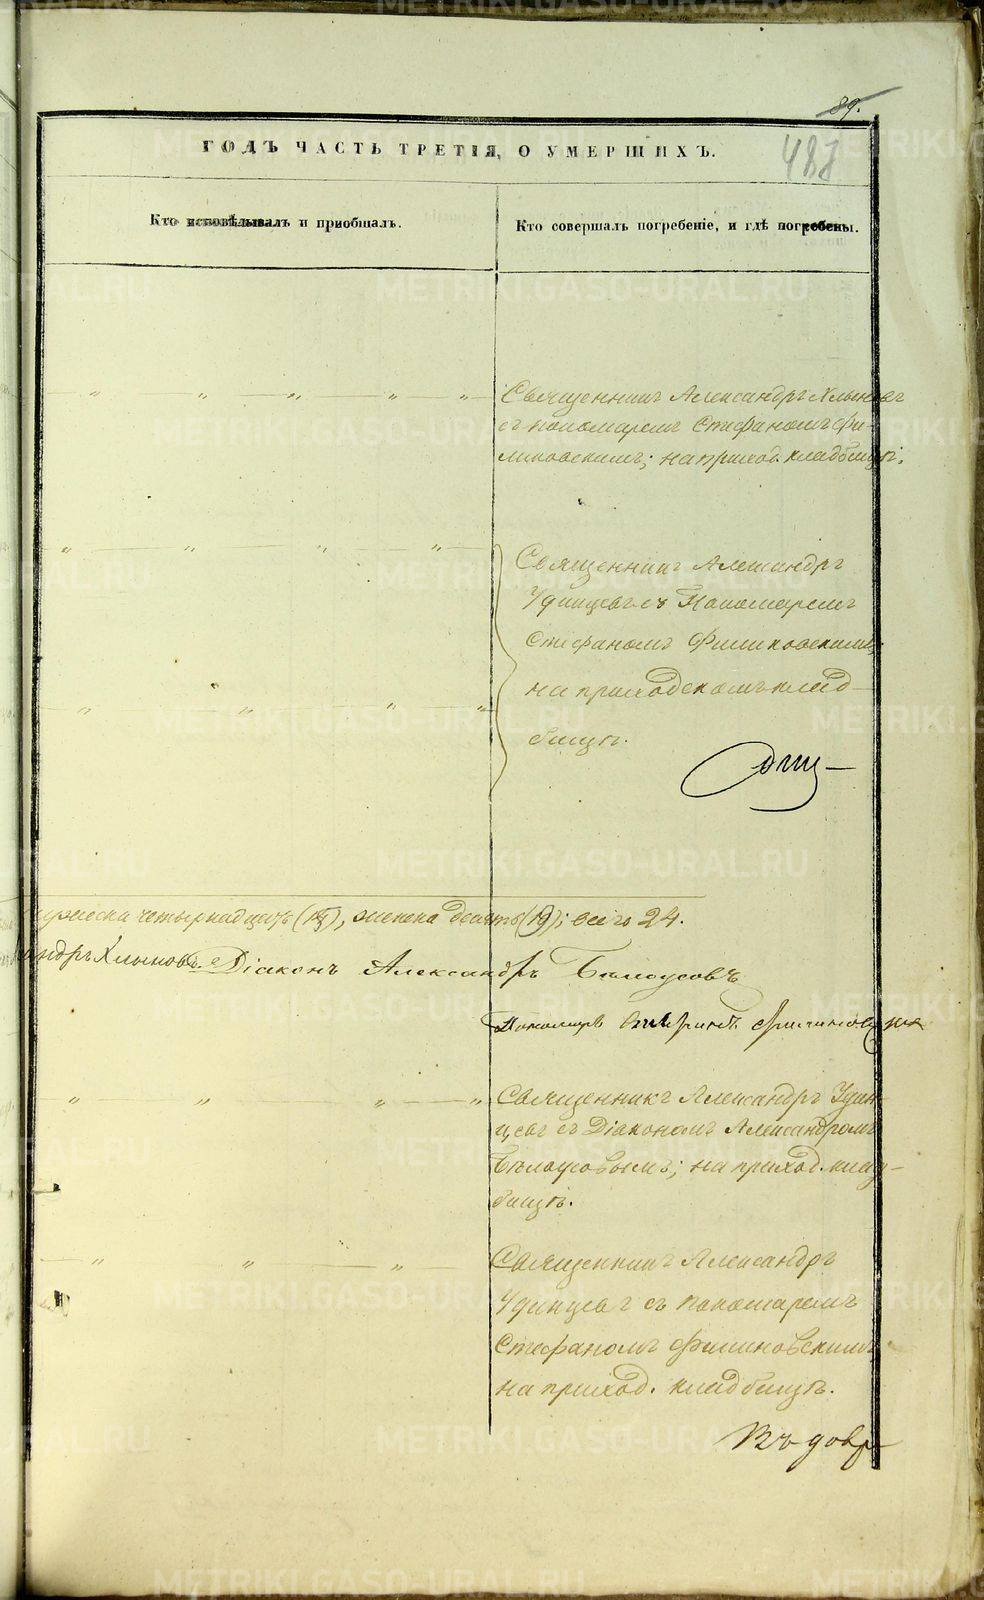 89.
487
ГОДЪ ЧАСТЬ ТРЕТІЯ, О УМЕРШИХЪ.
Кто исповѣдывалъ и пріобщалъ.
Кто совершалъ погребеніе, и гдѣ погребены.
Священникъ Александръ Хлыновъ
съ пономаремъ Стефаномъ Фи-
линовскимъ; на приход. кладбищѣ.
Священникъ Александръ
Удинцевъ съ Пономаремъ
Стефаномъ Филиновскимъ;
на приходскомъ клад-
бищѣ.
мужеска четырнадцать (14), женска десять (10); всего 24.
андръ Хлыновъ. Діаконъ Александръ Бѣлоусовъ
Пономарь Стефанъ Филиновскій
Священникъ Александръ Удин-
цевъ съ Діакономъ Александромъ
Бѣлоусовымъ; на приход. клад-
бищѣ.
Священникъ Александръ
Удинцевъ съ пономаремъ
Стефаномъ Филиновскимъ
на приход. кладбищѣ.
METRIKI.GASO-URAL.RU